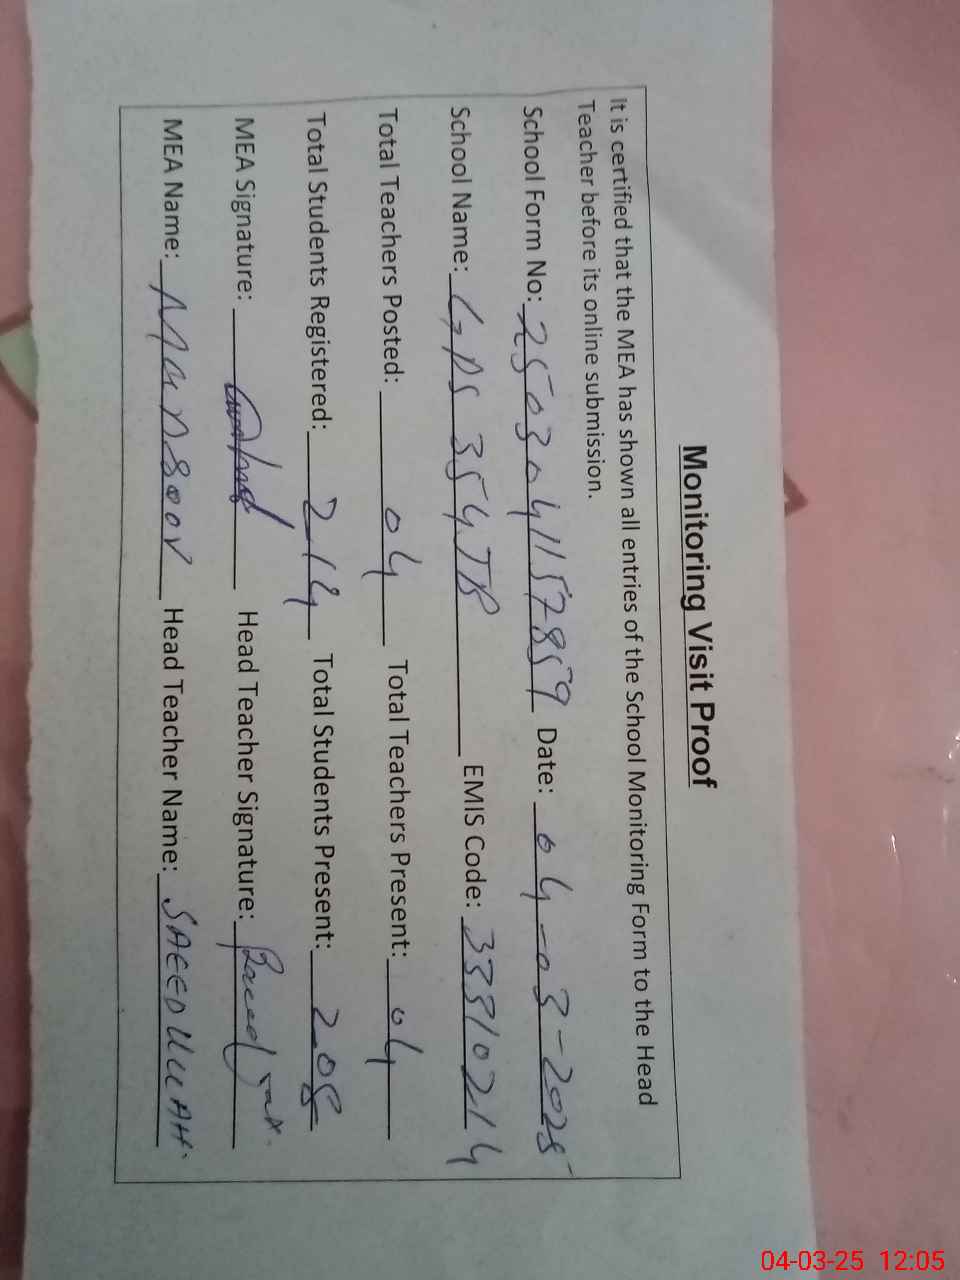 Monitoring Visit Proof
It is certified that the MEA has shown all entries of the School Monitoring Form to the Head
Teacher before its online submission.
School Form No: 2503041157859 Date: 04-03-2025
School Name: GPS 354 TB EMIS Code: 33310214
Total Teachers Posted: 04 Total Teachers Present: 04
Total Students Registered: 214 Total Students Present: 208
MEA Signature: Head Teacher Signature:
MEA Name: MANSOOR Head Teacher Name: SAEED ULLAH
04-03-25 12:05